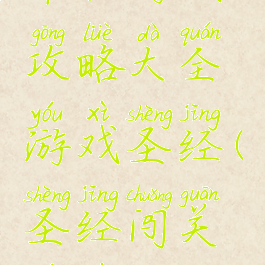 gōng lüè dà quán
攻略大全
yóu xì shèng jīng
游戏圣经(
shèng jīng chuǎng guān
圣经闯关